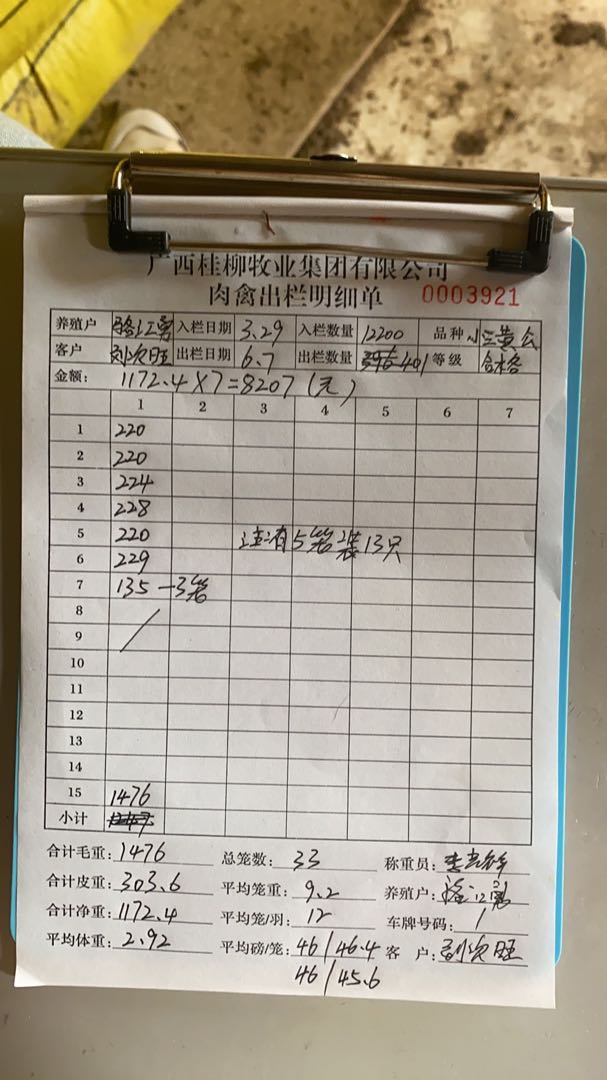 广西桂柳牧业集团有限公司
肉禽出栏明细单 0003921
养殖户 骆江勇 入栏日期 3.29 入栏数量 12200 品种 小三黄公
客户 刘次旺 出栏日期 6.7 出栏数量 396 401 等级 合格
金额: 1172.4×7=8207(元)
1 2 3 4 5 6 7
1 220
2 220
3 224
4 228
5 220 还有5笼装13只
6 229
7 135-3笼
8
9
10
11
12
13
14
15 1476
小计
合计毛重:1476 总笼数:33 称重员:
合计皮重:303.6 平均笼重:9.2 养殖户:骆江勇
合计净重:1172.4 平均笼/羽:12 车牌号码:1
平均体重:2.92 平均磅/笼:46/46.4 客 户:刘次旺
46/45.6